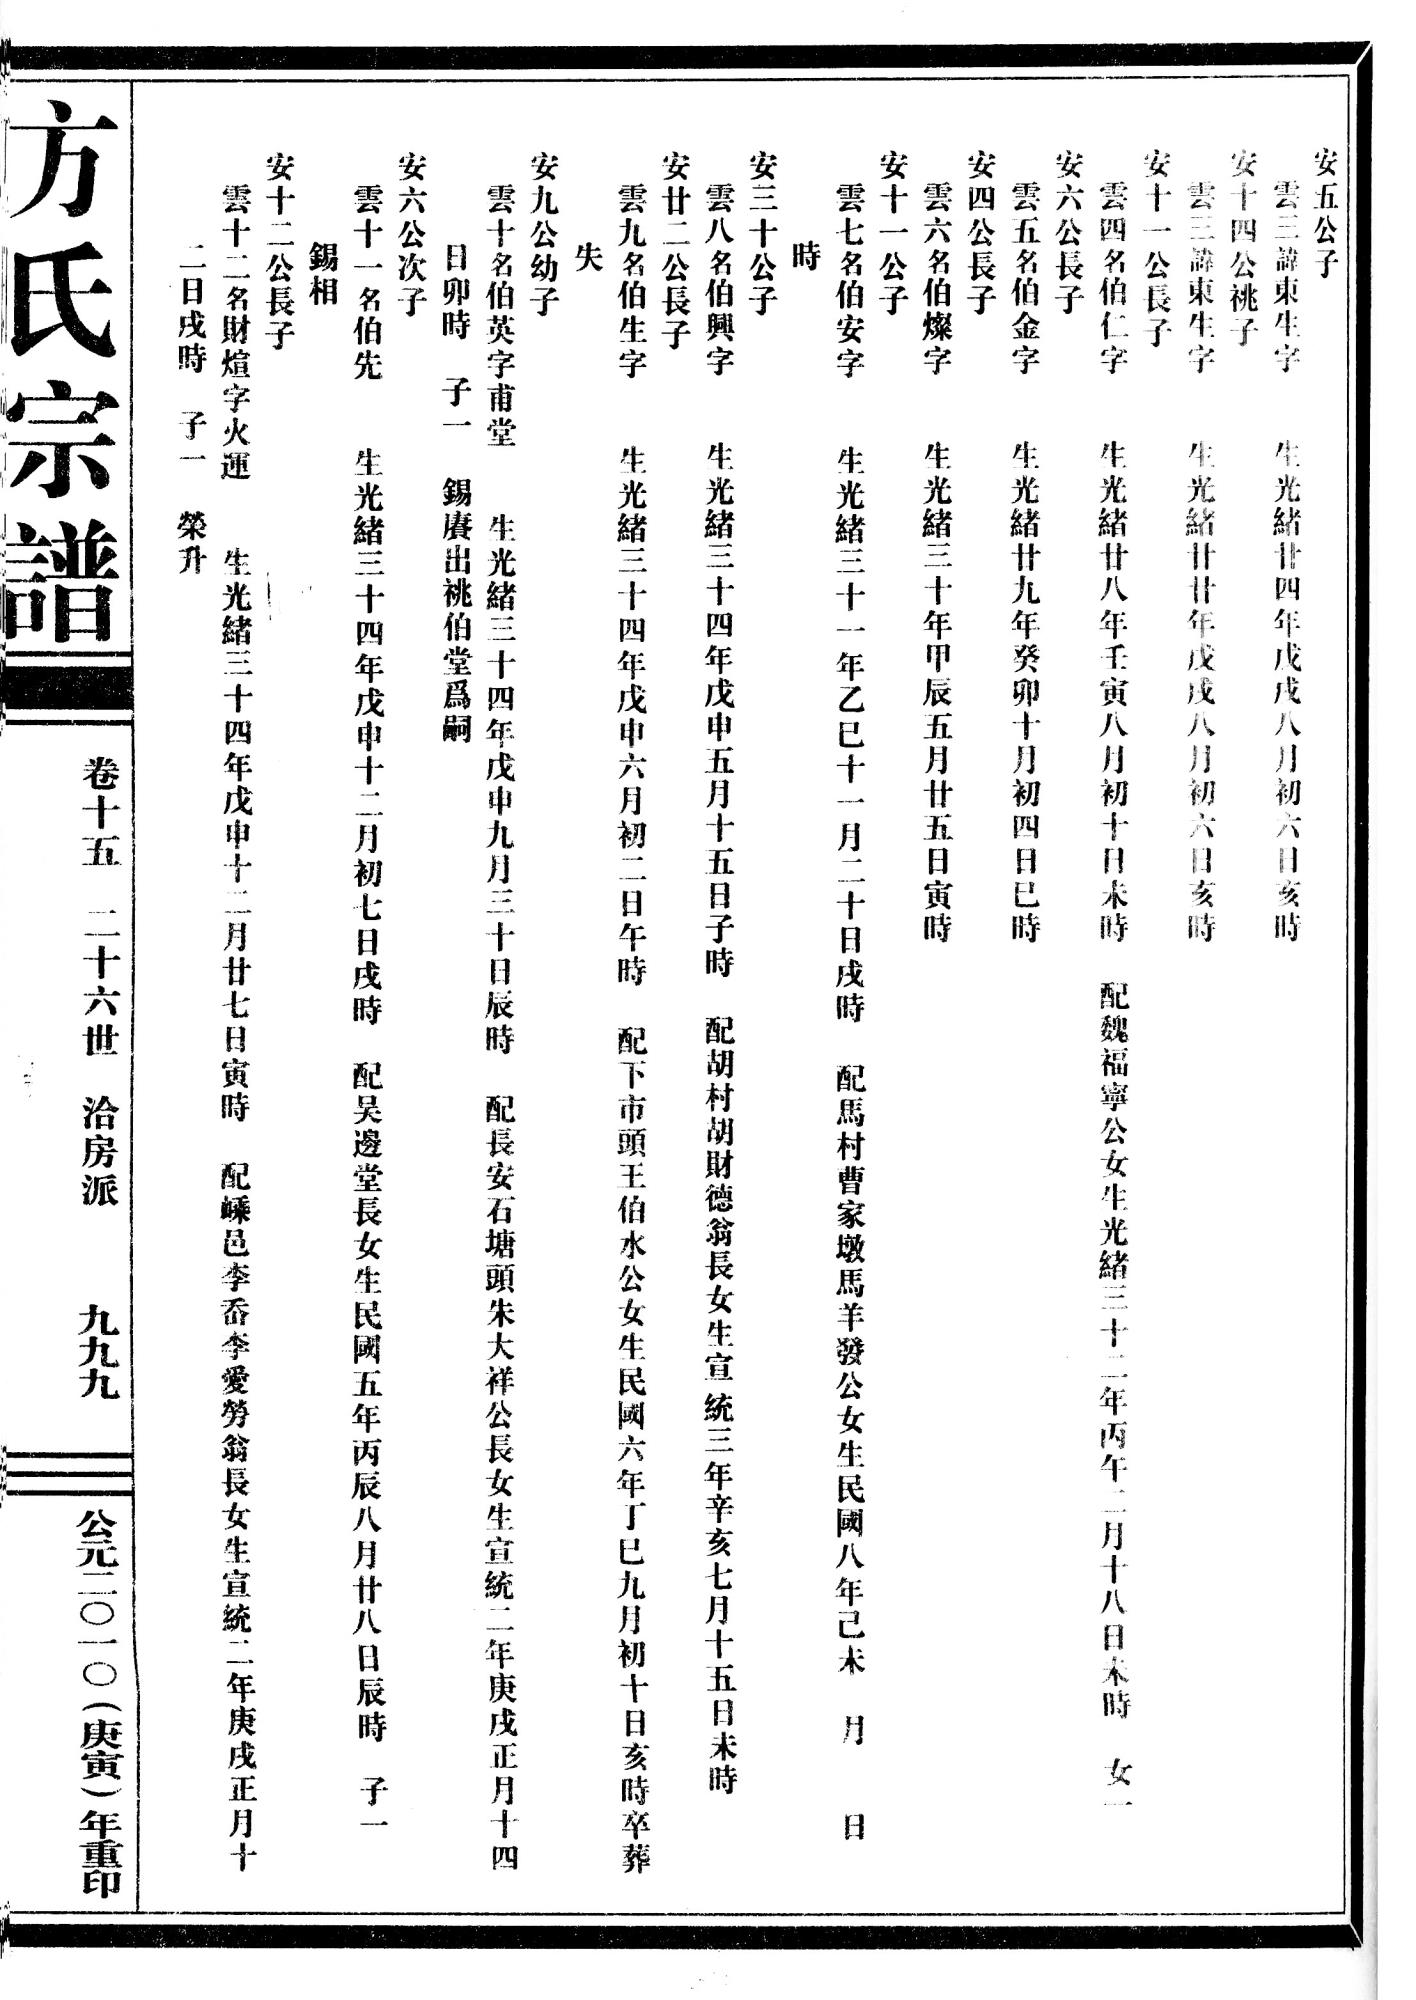 安五公子
雲三諱東生字　生光緒廿四年戊戌八月初六日亥時
安十四公祧子
雲三諱東生字　生光緒廿廿年戊戌八月初六日亥時
安十一公長子
雲四名伯仁字　生光緒廿八年壬寅八月初十日未時　配魏福寧公女生光緒三十二年丙午二月十八日未時　女一
安六公長子
雲五名伯金字　生光緒廿九年癸卯十月初四日巳時
安四公長子
雲六名伯燦字　生光緒三十年甲辰五月廿五日寅時
安十一公子
雲七名伯安字　生光緒三十一年乙巳十一月二十日戌時　配馬村曹家墩馬羊發公女生民國八年己未　月　日
時
安三十公子
雲八名伯興字　生光緒三十四年戊申五月十五日子時　配胡村胡財德翁長女生宣統三年辛亥七月十五日未時
安廿二公長子
雲九名伯生字　生光緒三十四年戊申六月初二日午時　配下市頭王伯水公女生民國六年丁巳九月初十日亥時卒葬
失
安九公幼子
雲十名伯英字甫堂　生光緒三十四年戊申九月三十日辰時　配長安石塘頭朱大祥公長女生宣統二年庚戌正月十四
日卯時　子一　錫賡出祧伯堂爲嗣
安六公次子
雲十一名伯先　生光緒三十四年戊申十二月初七日戌時　配吳邊堂長女生民國五年丙辰八月廿八日辰時　子一
錫相
安十二公長子
雲十二名財煊字火運　生光緒三十四年戊申十二月廿七日寅時　配嵊邑李岙李愛勞翁長女生宣統二年庚戌正月十
二日戌時　子一　榮升
方氏宗譜
卷十五　二十六世　洽房派　九九九
公元二〇一〇（庚寅）年重印